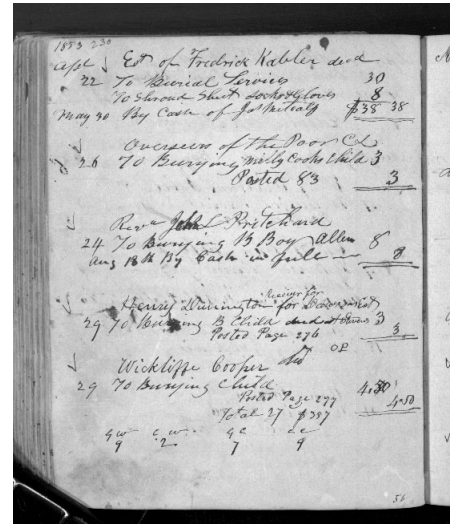 1853 230
Apl Est of Fredrick Kabler decd
22 To Burial Services 30
To Shroud Shirt socks & Gloves 8
May 30 By Cash of Jas Metcalf $38 38
Overseers of the Poor
26 To Burying Milly Cooks Child 3
Posted 83 3
Revd John Pritchard
24 To Burying B Boy Allen 8
Aug 18th By Cash in full 8
Henry Dunnington for
29 To Burying B Elida 3
Posted Page 276 3
OP
Wickliffe Cooper
29 To Burying Child 4.50
Posted Page 277 4.50
Total 27 $397
G W C W G C C C
9 2 7 9
56